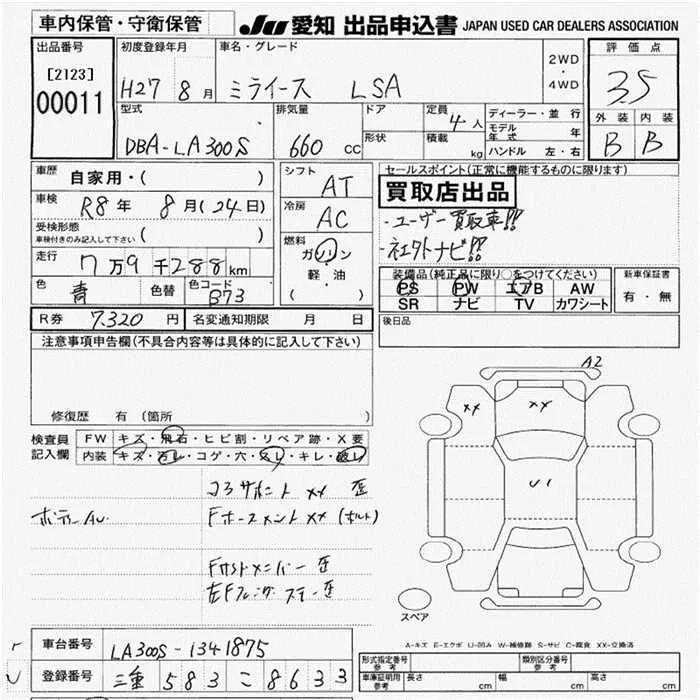 車内保管・守衛保管 JU 愛知 出品申込書 JAPAN USED CAR DEALERS ASSOCIATION
出品番号 初度登録年月 車名・グレード 2WD・4WD 評価点
[2123] 00011 H27 8月 ミライース LSA 3.5
型式 排気量 ドア 定員 4人 ディーラー・並行 外装 内装
DBA-LA300S 660 cc 形状 積載 kg モデル年式 年 B B
ハンドル 左・右
車歴 自家用・( ) シフト AT セールスポイント(正常に機能するものに限ります)
車検 R8年 8月(24日) 冷房 AC 買取店出品
受検形態 車検付きのみ記入して下さい ( ) ・ユーザー買取車!!
走行 7万9千288km 燃料 ガソリン・軽油 ( )
色 青 色替 色コード B73 装備品(純正品に限り○をつけてください) 新車保証書
PS PW エアB AW 有・無
SR ナビ TV カワシート
R券 7,320円 名変通知期限 月 日 後日品
注意事項申告欄(不具合内容等は具体的に記入して下さい)
修復歴 有 (箇所
A2
検査員記入欄 FW キズ・飛石・ヒビ割・リペア跡・X要
内装 キズ・コゲ・穴・キレ・破レ
XX XX
コアサポート XX 歪
U1
Fホースメント XX (ボルト)
歪
歪
スペア
A-キズ E-エクボ U-凹み W-補修跡 S-サビ C-腐食 XX-交換済
車台番号 LA300S-1341875
登録番号 三重 583 こ 8633
形式指定番号 参考 類別区分番号 参考
車庫証明用 参考 長さ cm 幅 cm 高さ cm